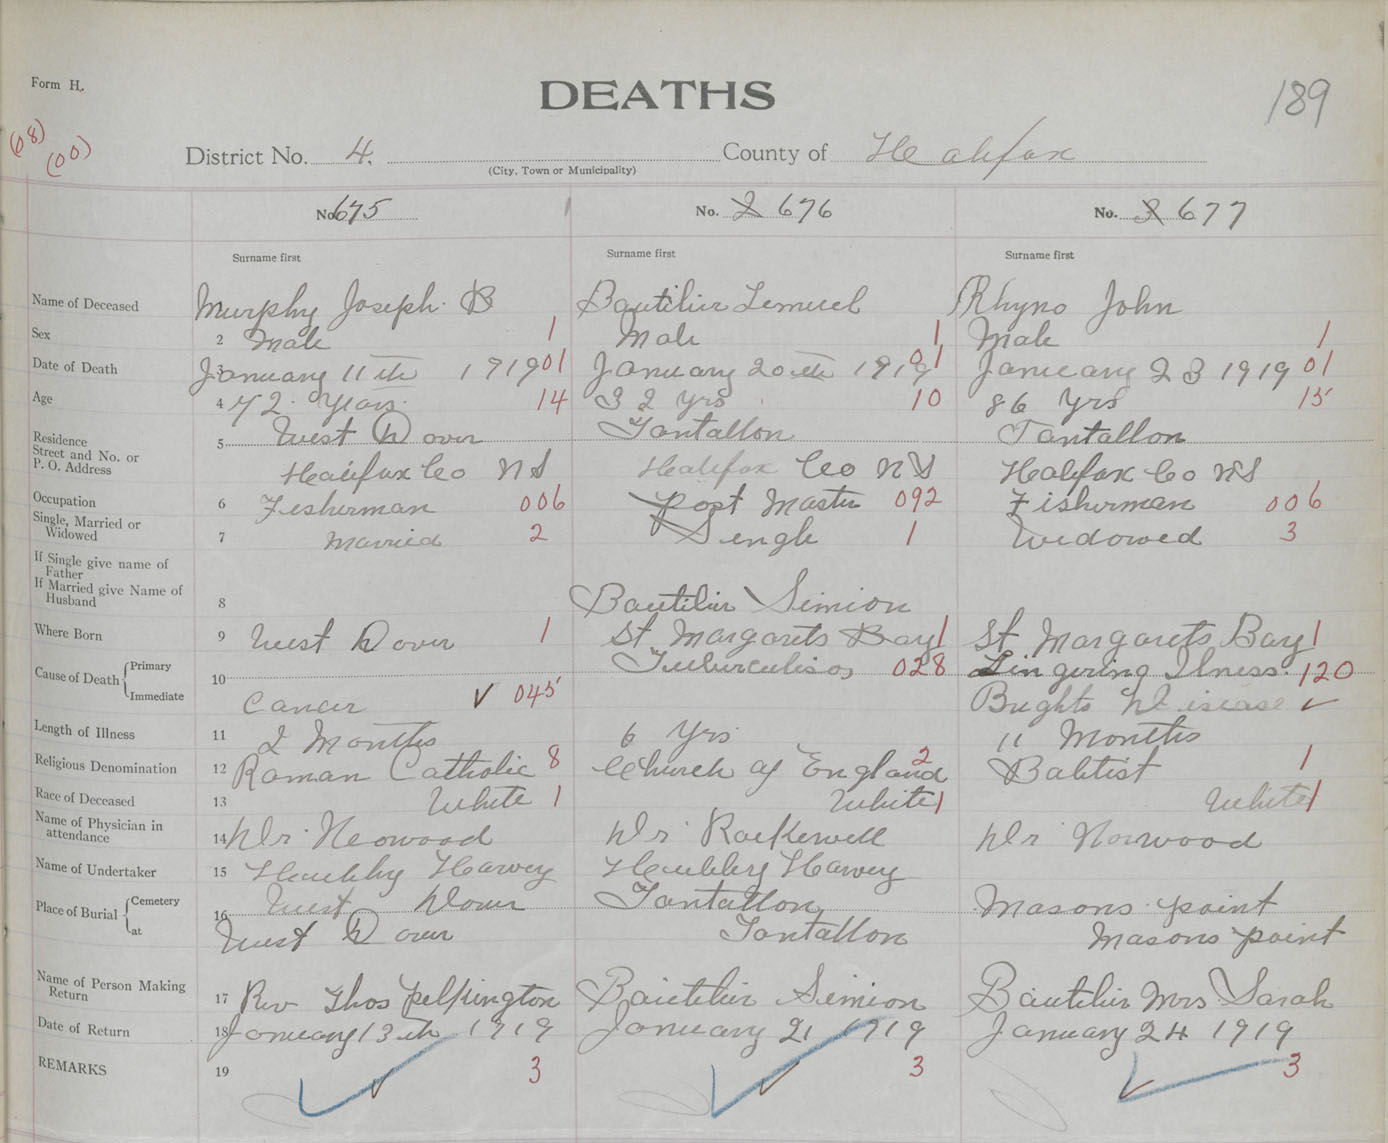 Form H.
DEATHS
189
(08)
(00)
District No. 4. County of Halifax
(City, Town or Municipality)
No. 675 No. 2 676 No. 3 677
Surname first Surname first Surname first
Name of Deceased Murphy Joseph B Boutilier Lemuel Rhyno John
Sex 2 Male 1 Male 1 Male 1
Date of Death 3 January 11th 1919 01 January 20th 1919 01 January 23 1919 01
Age 4 72 Years 14 32 Yrs 10 86 Yrs 15
Residence 5 West Dover Tantallon Tantallon
Street and No. or
P. O. Address Halifax Co NS Halifax Co NS Halifax Co NS
Occupation 6 Fisherman 006 Post Master 092 Fisherman 006
Single, Married or
Widowed 7 Married 2 Single 1 Widowed 3
If Single give name of
Father
If Married give Name of
Husband 8 Boutilier Simion
Where Born 9 West Dover 1 St Margarets Bay 1 St Margarets Bay 1
Cause of Death Primary 10 Tuberculisos 028 Lingering Illness. 120
Immediate Cancer 045 Brights Disease
Length of Illness 11 2 Months 6 Yrs 11 Months
Religious Denomination 12 Roman Catholic 8 Church of England 2 Babtist 1
Race of Deceased 13 White 1 White 1 White 1
Name of Physician in
attendance 14 Dr Neowood Dr Rockewell Dr Norwood
Name of Undertaker 15 Haubby Harvey Haubbry Harvey
Place of Burial Cemetery 16 West Dover Tantallon Masons point
at West Dover Tantallon Masons point
Name of Person Making
Return 17 Rev Thos Pelkington Boutilier Simion Boutilier Mrs Sarah
Date of Return 18 January 13th 1919 January 21 1919 January 24 1919
REMARKS 19 3 3 3